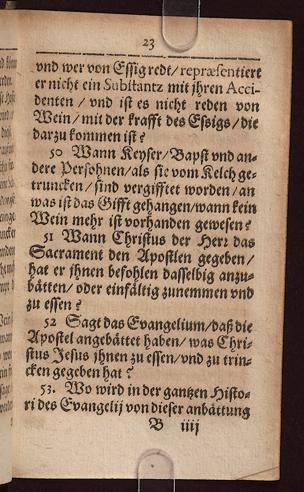 23
vnd wer von Essig redt/repræsentiert
er nicht ein Substantz mit jhren Acci-
denten / vnd ist es nicht reden von
Wein/mit der krafft des Essigs/die
darzu kommen ist?
50 Wann Keyser/Bapst vnd an-
dere Persohnen/als sie vom Kelch ge-
truncken/sind vergifftet worden/an
was ist das Gifft gehangen/wann kein
Wein mehr ist vorhanden gewesen?
51 Wann Christus der Herr das
Sacrament den Apostlen gegeben/
hat er jhnen befohlen dasselbig anzu-
bätten/oder einfältig zunemmen vnd
zu essen?
52 Sagt das Evangelium/daß die
Apostel angebättet haben/was Chri-
stus Jesus jhnen zu essen/vnd zu trin-
cken gegeben hat?
53. Wo wird in der gantzen Histo-
ri des Evangelij von dieser anbättung
B iiij